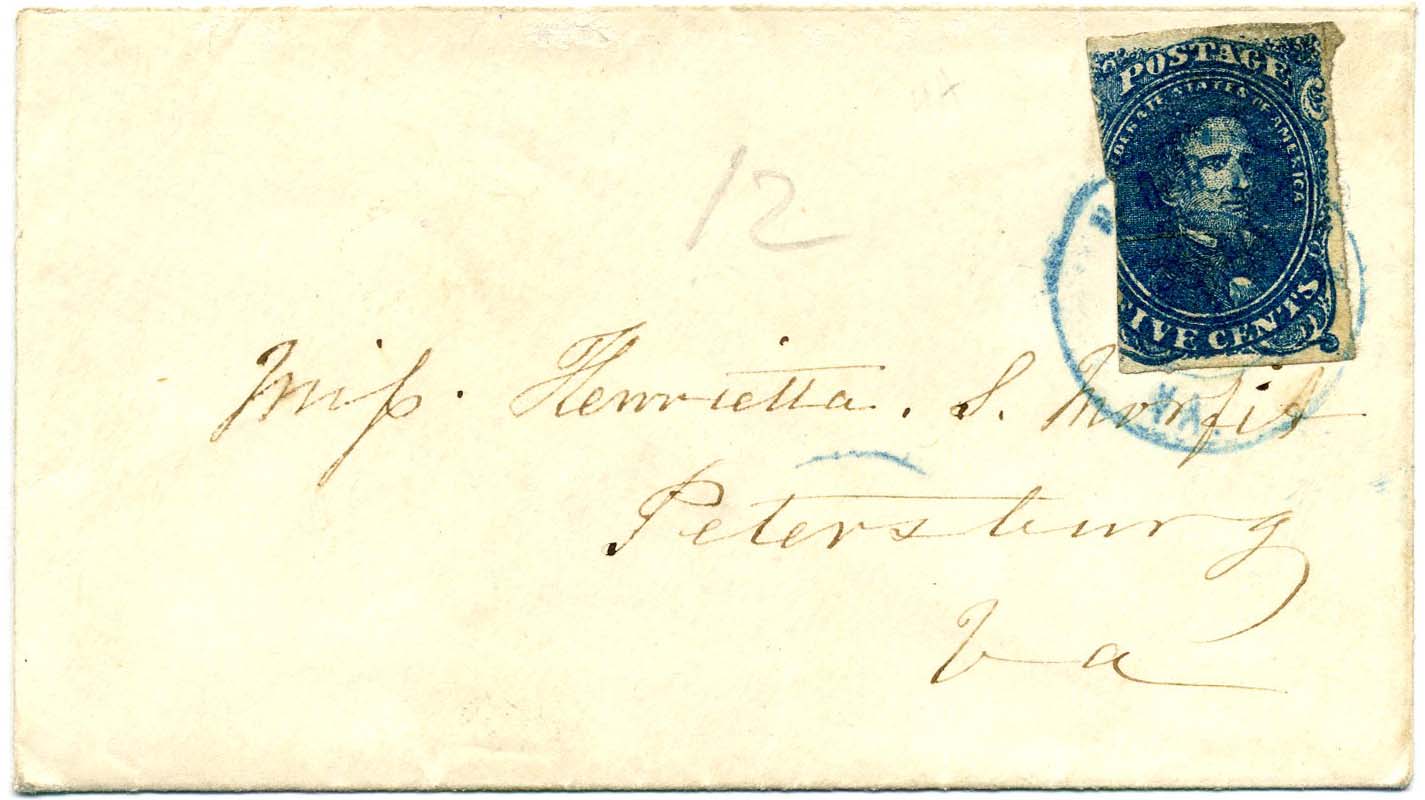 POSTAGE
EDERATE STATES OF AMERICA
IVE CENTS
VA.
12
Miſs. Henrietta. S. Morfit
Petersburg
Va